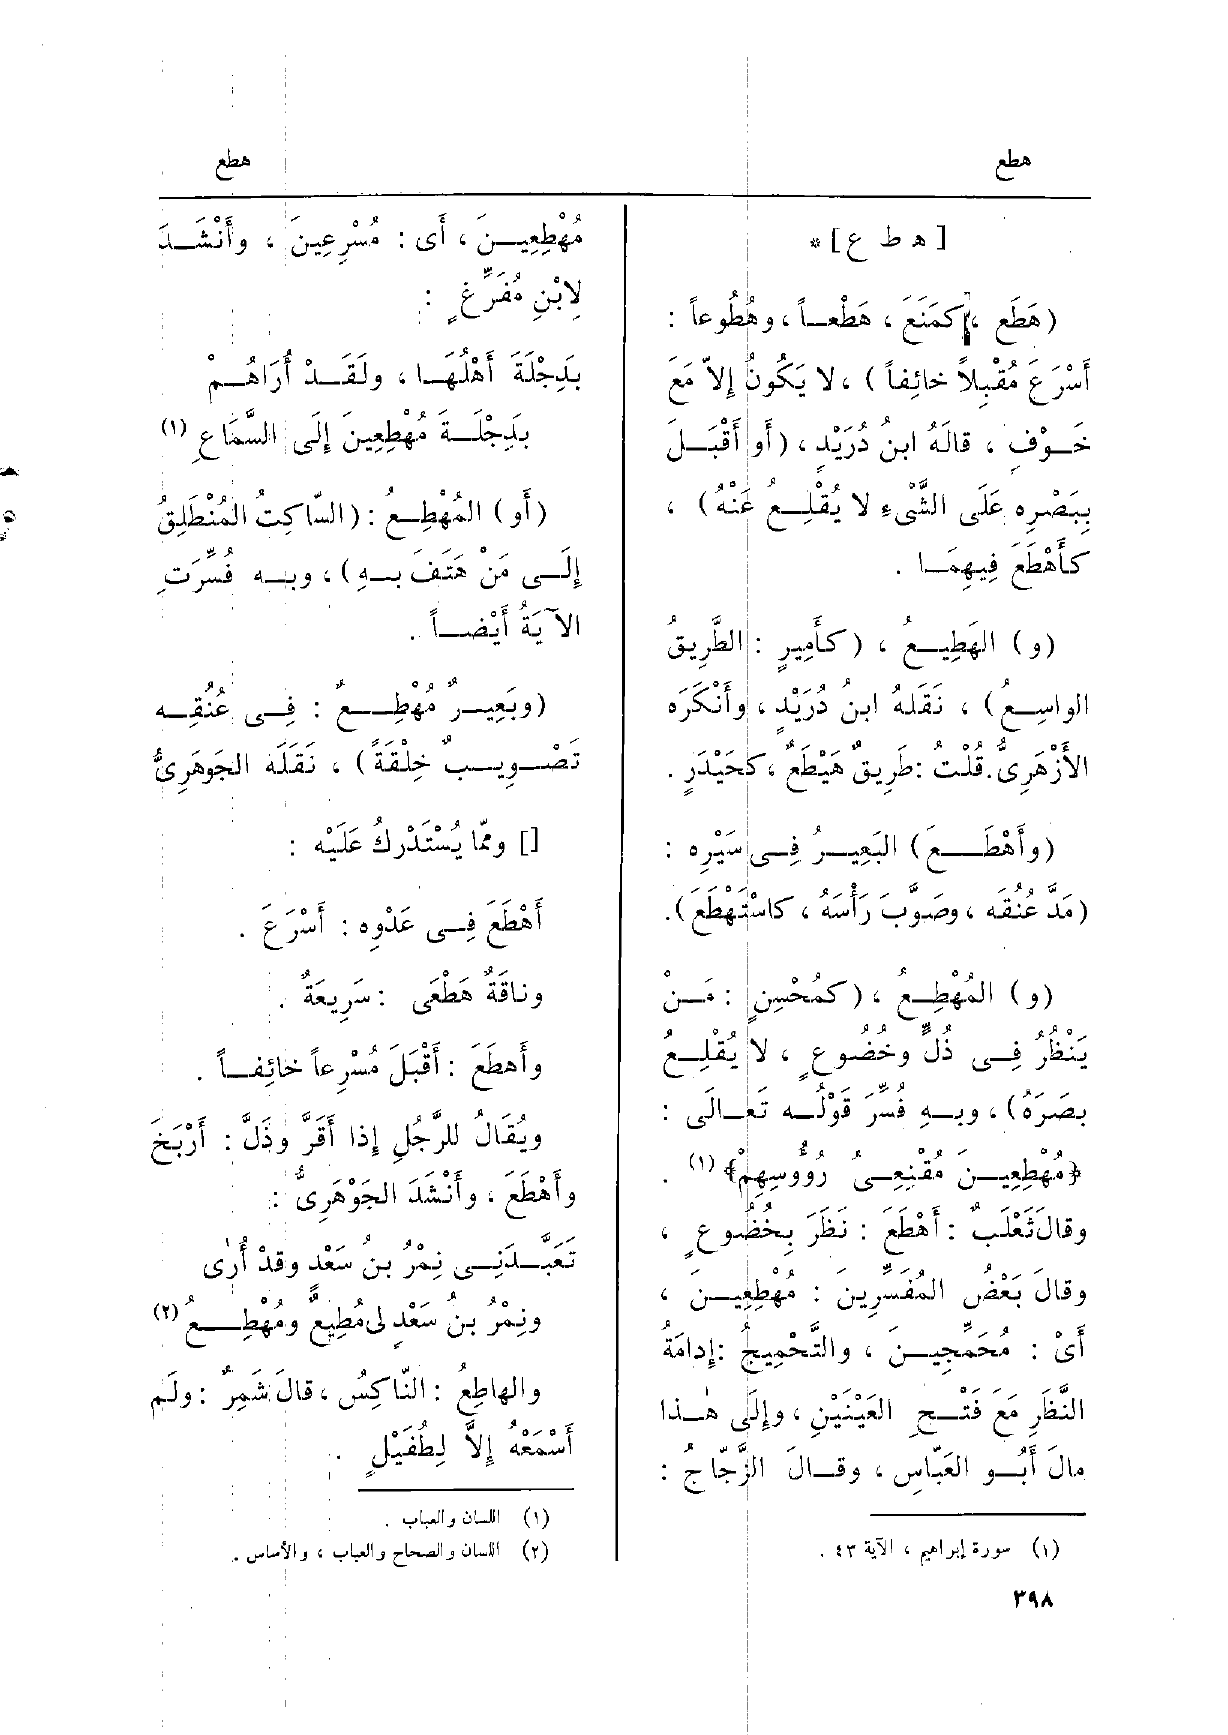 هطع
هطع
[ ه ط ع ] *
(هَطَع ، كمَنَعَ ، هَطْعـاً ، وهُطُوعاً :
أَسْرَعَ مُقْبِلاً خائِفاً ) ، لا يَكُونُ إِلاّ مَعَ
خَـوْفٍ ، قالَهُ ابنُ دُرَيْدٍ ، (أَو أَقْبَـلَ
بِبَصْرِه عَلَى الشَّىْءِ لا يُقْلِـعُ عَنْهُ ) ،
كأَهْطَعَ فِيهِمَـا .
(و) الهَطِيـعُ ، (كأَمِيرٍ : الطَّرِيقُ
الواسِـعُ) ، نَقَلهُ ابنُ دُرَيْدٍ ، وأَنْكَرَه
الأَزْهَرِىُّ . قُلْت : طَرِيقٌ هَيْطَعٌ ، كحَيْدَرٍ .
(وأَهْطَـعَ) البَعِيـرُ فِـى سَيْرِه :
(مَدَّ عُنُقَه ، وصَوَّبَ رَأْسَهُ ، كاسْتَهْطَعَ).
(و) المُهْطِـع ، (كمُحْسِنٍ : مَـنْ
يَنْظُرُ فِـى ذُلٍّ وخُضُوعٍ ، لا يُقْلِـعُ
بصَرَهُ) ، وبِـهِ فُسِّرَ قَوْلُـه تَعَـالَى :
﴿مُهْطِعِيـنَ مُقْنِعِـى رُؤُوسِهِمْ﴾ (١) .
وقالَ ثَعْلَبٌ : أَهْطَعَ : نَظَرَ بِخُضُوعٍ ،
وقالَ بَعْضُ المُفَسِّرِين : مُهْطِعِيـنَ ،
أَىْ : مُحَمِّجِيـنَ ، والتَّحْمِيجُ : إِدامَةُ
النَّظَرِ مَعَ فَتْـحِ العَيْنَيْنِ ، وإِلَى هٰـذا
مالَ أَبُـو العَبّاسِ ، وقـالَ الزَّجّاجُ :
(١) سورة إبراهيم ، الآية ٤٣ .
٣٩٨
مُهْطِعِيـنَ ، أَى : مُسْرِعِينَ ، وأَنْشَـدَ
لِابْنِ مُفَرِّغٍ :
بِدِجْلَةَ أَهْلُهَـا ، ولَقَـدْ أُرَاهُـمْ
بِدِجْلَـةَ مُهْطِعِينَ إِلَى السَّمَاعِ (١)
(أَو) المُهْطِـعُ : (السّاكِتُ المُنْطَلِقُ
إِلَـى مَنْ هَتَفَ بِـهِ ) ، وبِـه فُسِّرَت
الآيَةُ أَيْضـاً .
(وبَعِيـرٌ مُهْطِـعٌ : فِـى عُنُقِـه
تَصْوِيـبٌ خِلْقَةً ) ، نَقَلَه الجَوهَرِىُّ
[] وممّا يُسْتَدْركُ عَلَيْه :
أَهْطَعَ فِـى عَدْوِه : أَسْرَعَ .
وناقَةٌ هَطْعَى : سَرِيعَةٌ .
وأَهطَعَ : أَقْبَلَ مُسْرِعاً خائِفـاً .
ويُقَالُ للرَّجُلِ إِذا أَقَرَّ وذَلَّ : أَرْبَخَ
وأَهْطَعَ ، وأَنْشَدَ الجَوْهَرِىُّ :
تَعَبَّـدَنِـى نِمْرُ بنُ سَعْدٍ وقدْ أُرَىٰ
ونِمْرُ بنُ سَعْدٍ لِى مُطِيعٌ ومُهْطِـعُ (٢)
والهاطِعُ : النّاكِسُ ، قالَ شَمِرٌ : ولَم
أَسْمَعْهُ إِلاَّ لِطُفَيْلٍ .
(١) اللسان والعباب .
(٢) اللسان والصحاح والعباب ، والأساس .